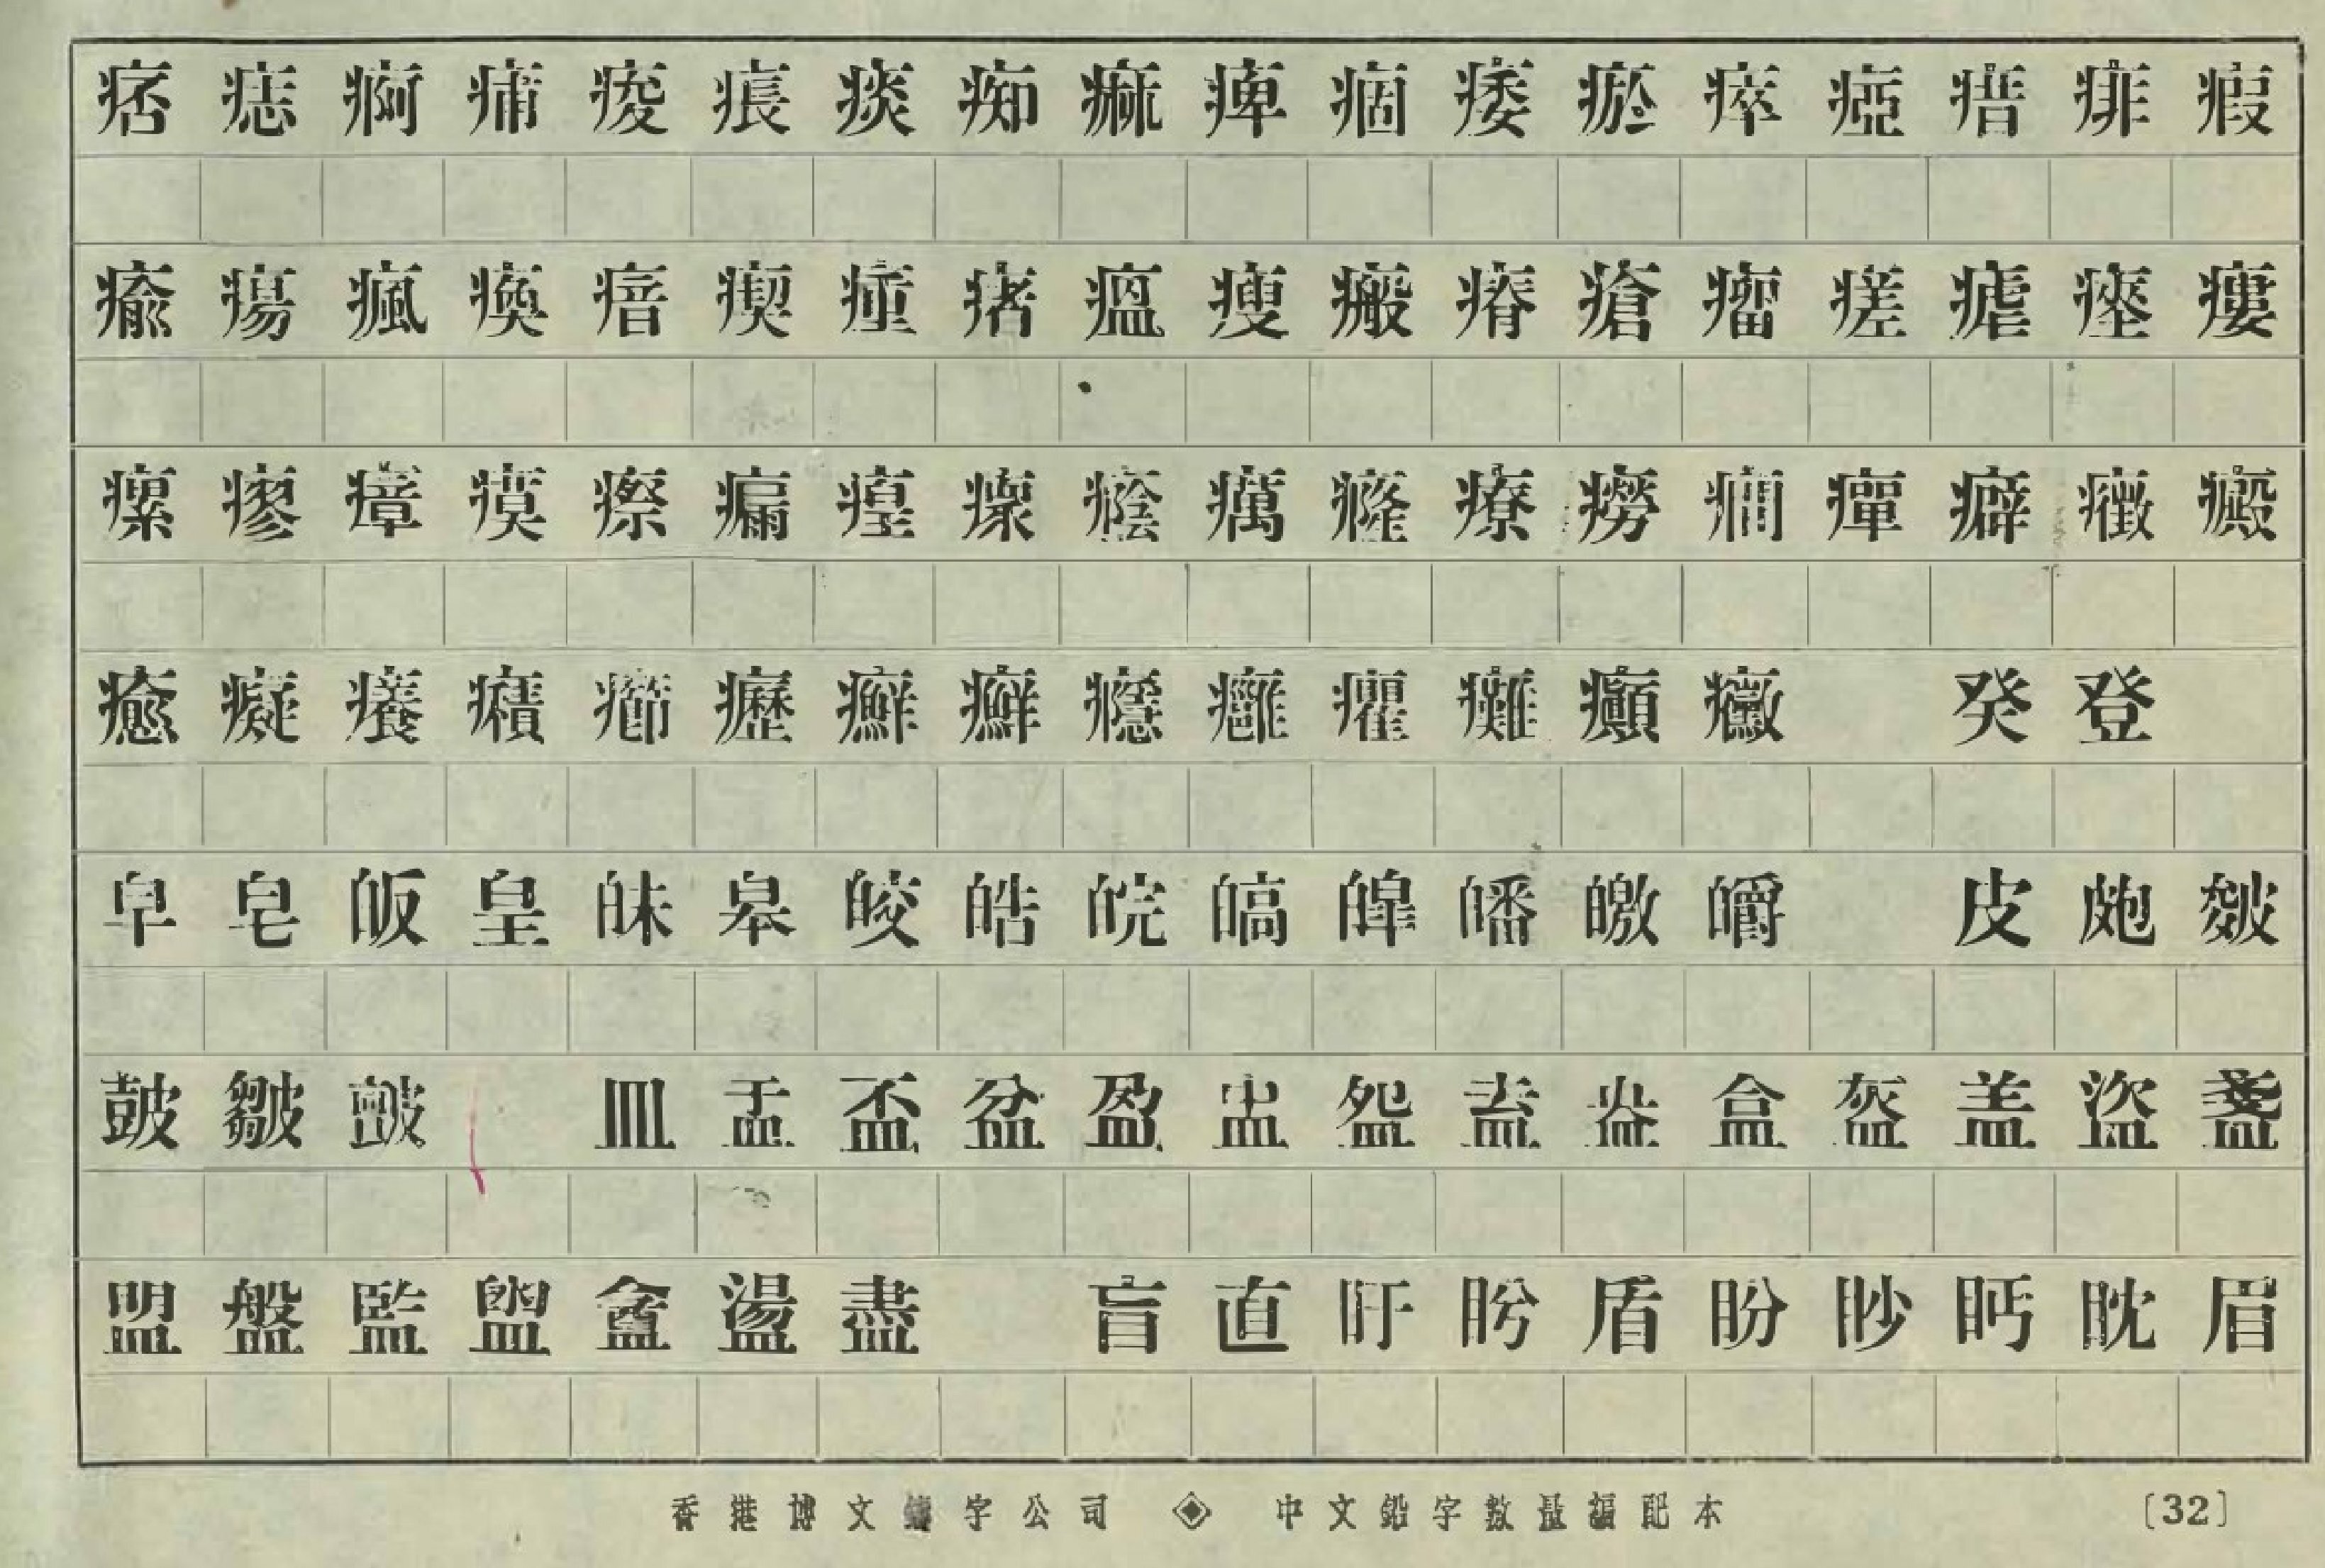 痞 痣 痾 痡 痠 痮 痰 痴 痳 痺 痼 痿 瘀 瘁 瘂 瘄 痱 瘕
瘉 瘍 瘋 瘓 瘖 瘈 瘇 瘏 瘟 瘦 瘢 瘠 瘡 瘤 瘥 瘧 瘞 瘻
瘰 瘳 瘴 瘼 瘵 瘺 瘽 癙 癊 癘 癃 療 癆 癇 癉 癖 癥 癜
癒 癡 癢 癪 癤 癧 癬 癬 癮 癰 癯 癱 癲 癥 癸 登
皁 皂 皈 皇 皌 皋 皎 皓 皖 皜 皞 皤 皦 皭 皮 皰 皴
皷 皺 皽 皿 盂 盃 盆 盈 盅 盌 盍 盆 盒 盔 盖 盜 盞
盟 盤 監 盥 盦 盪 盡 盲 直 盱 盻 盾 盼 眇 眄 眈 眉
香港博文鑄字公司 中文鉛字數量編配本 〔32〕